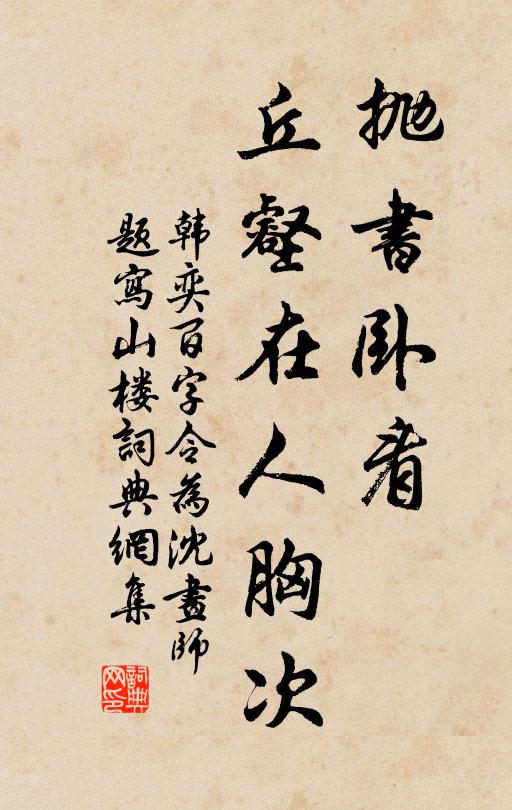 抛書卧看
丘壑在人胸次
韩奕百字令為沈畫師
题寫山楼詞典網集
詞典网印